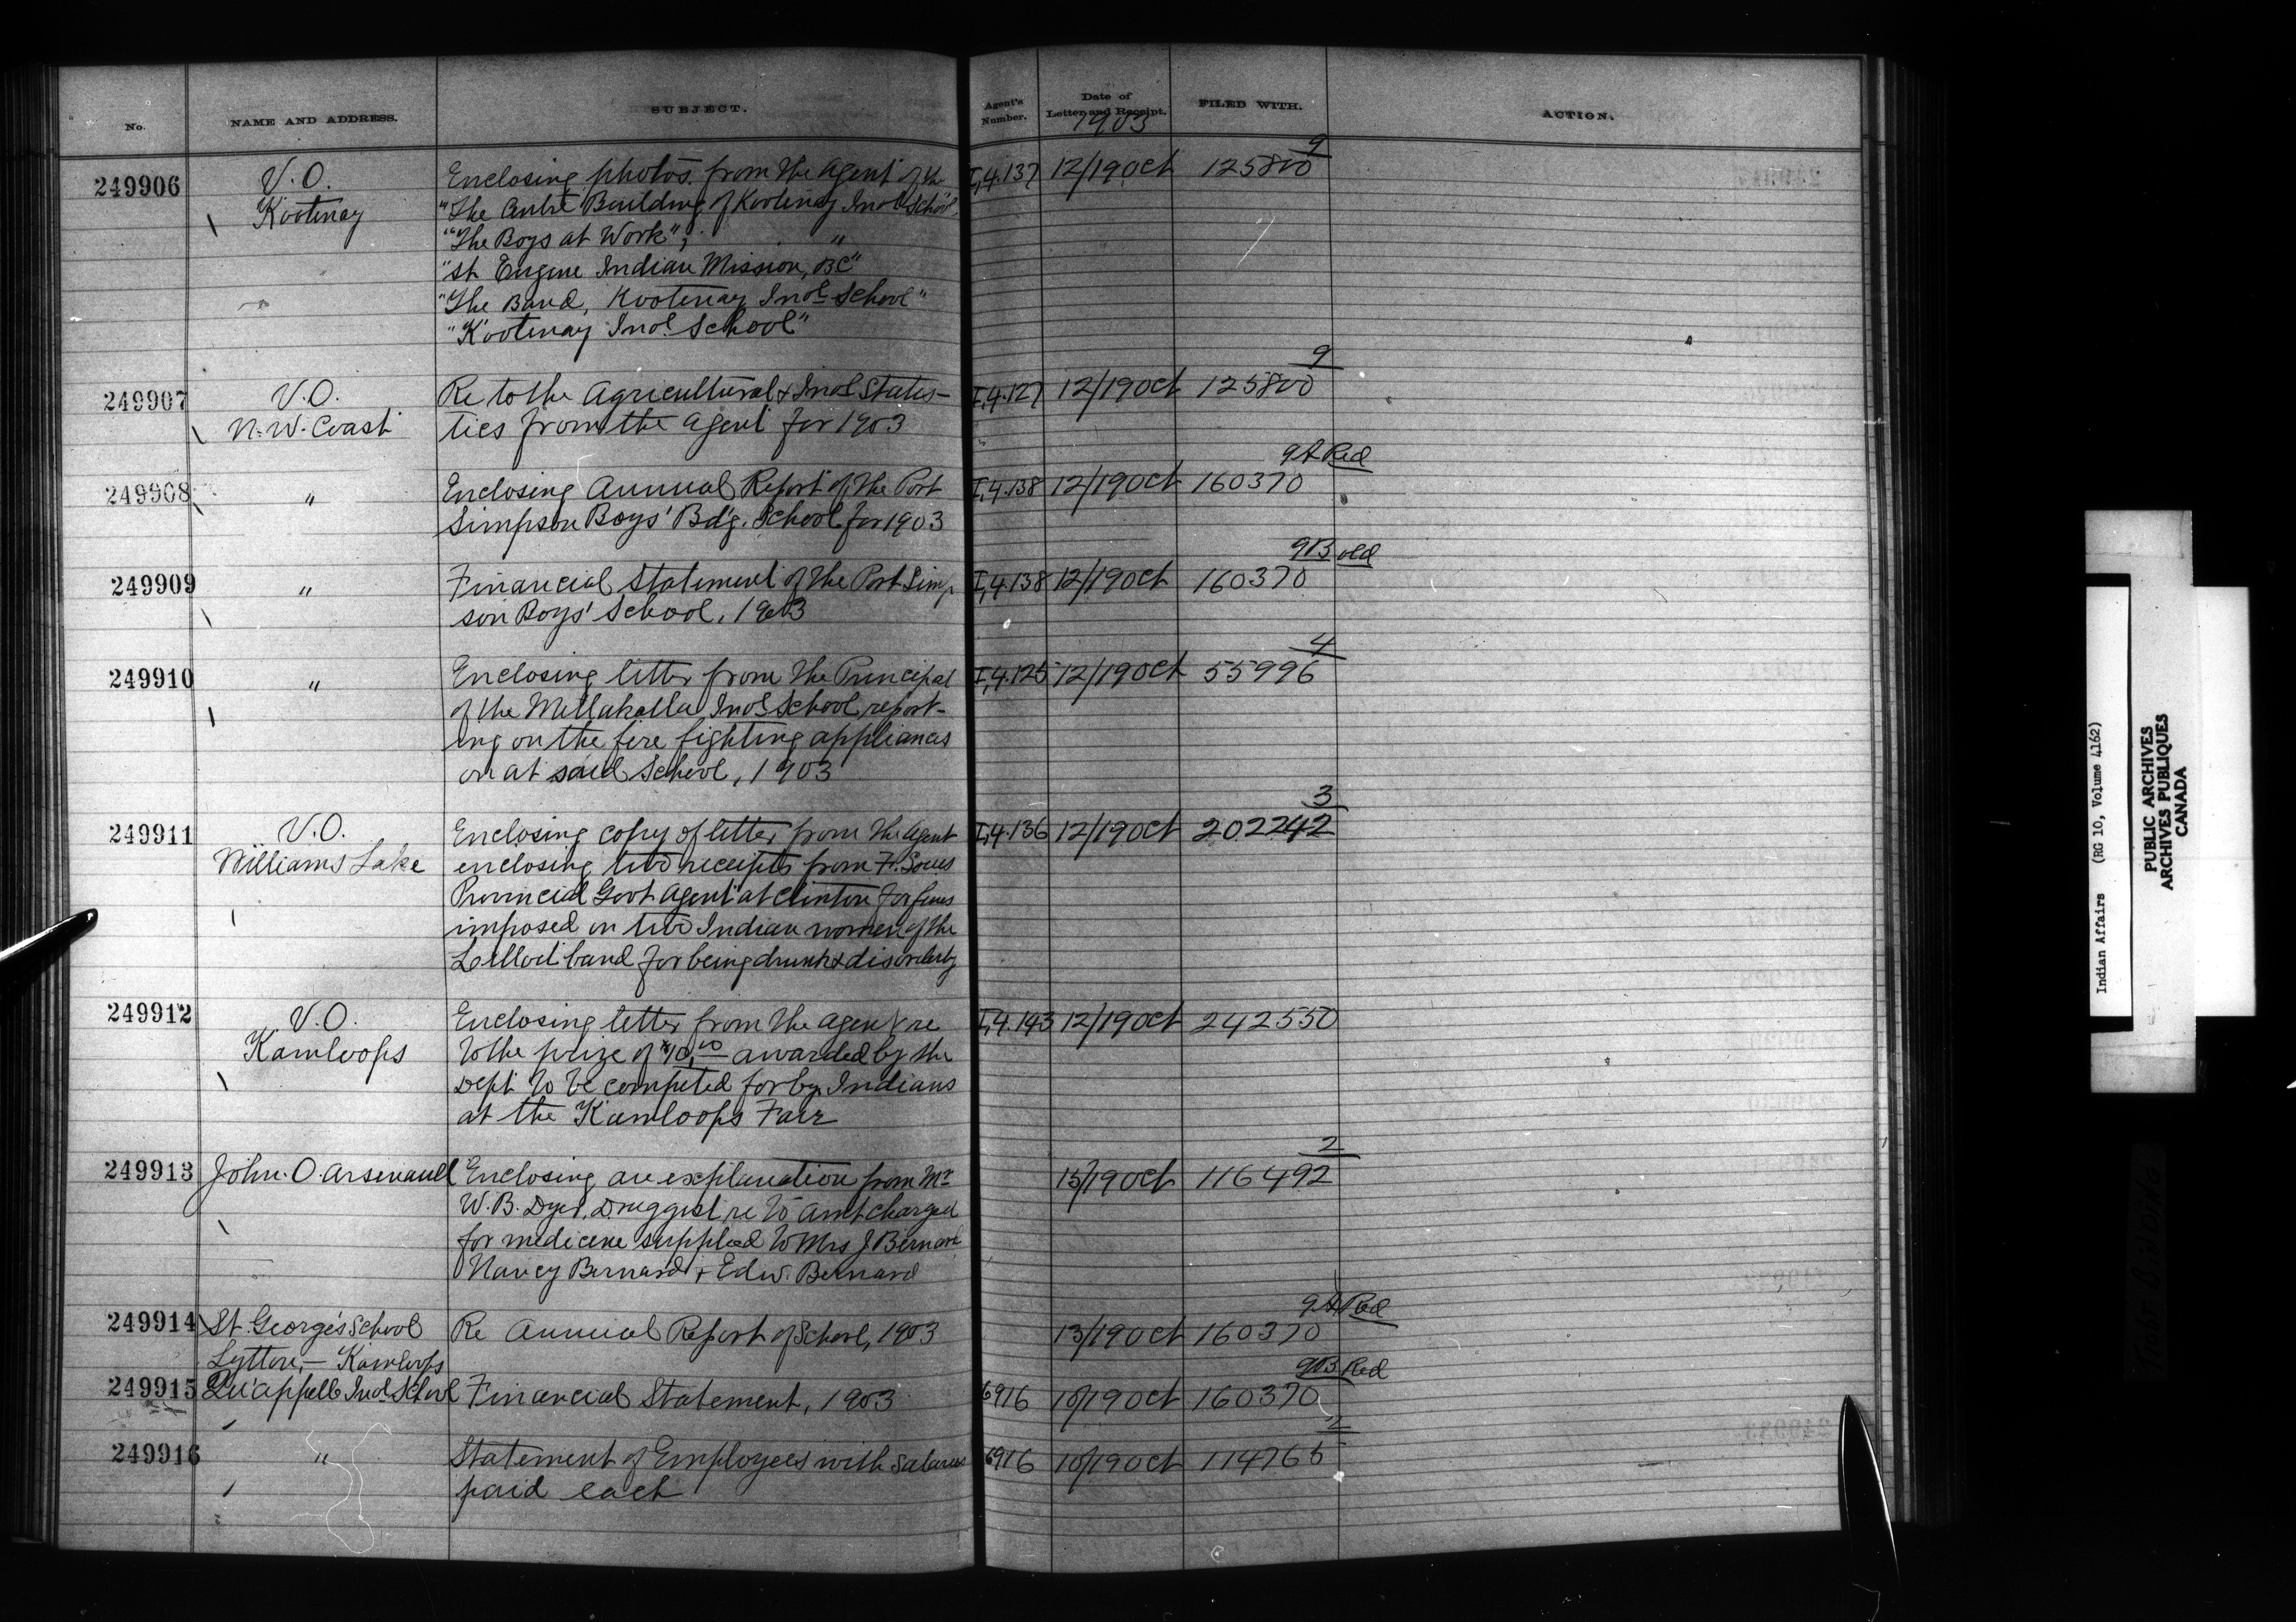 No. NAME AND ADDRESS. SUBJECT. Agent's Number. Date of Letter and Receipt. FILED WITH. ACTION.
1903
9
249906 V.O. Enclosing photos. from the Agent of the I,4.137 12/19 Oct 125800
Kootenay "The Centre Building of Kootenay Indl School"
"The Boys at Work", "
"St Eugene Indian Mission, BC"
"The Band, Kootenay Indl School"
"Kootenay Indl School"
9
249907 V.O. Re to the Agricultural & Indl Statis- I,4.127 12/19 Oct 125800
N.W. Coast tics from the Agent for 1903
9A Red
249908 " Enclosing Annual Report of the Port I,4.138 12/19 Oct 160370
Simpson Boys' Bd'g. School for 1903
9B old
249909 " Financial Statement of the Port Simp I,4.138 12/19 Oct 160370
son Boys' School, 1903
4
249910 " Enclosing letter from the Principal I,4.125 12/19 Oct 55996
of the Metlakatla Indl School report-
ing on the fire fighting appliances
on at said School, 1903
3
249911 V.O. Enclosing copy of letter from the Agent I,4.136 12/19 Oct 202242
Williams Lake enclosing two receipts from F. Soues
Provincial Govt Agent at Clinton for fines
imposed on two Indian women of the
Lillooet band for being drunk & disorderly
249912 V.O. Enclosing letter from the Agent re I,4.143 12/19 Oct 242550
Kamloops to the prize of $10.00 awarded by the
Dept to be competed for by Indians
at the Kamloops Fair
2
249913 John O. Arsenault Enclosing an explanation from Mr 15/19 Oct 116492
W.B. Dyer, Druggist re to amt charged
for medicine supplied to Mrs J Bernard
Nancy Bernard & Edw. Bernard
9A Red
249914 St. George's School Re Annual Report of School, 1903 13/19 Oct 160370
Lytton, - Kamloops
9B Red
249915 Qu'appelle Indl School Financial Statement, 1903 6916 10/19 Oct 160370
2
249916 " Statement of Employees with salaries 6916 10/19 Oct 114765
paid each
Indian Affairs (RG 10, Volume 4162)
PUBLIC ARCHIVES
ARCHIVES PUBLIQUES
CANADA